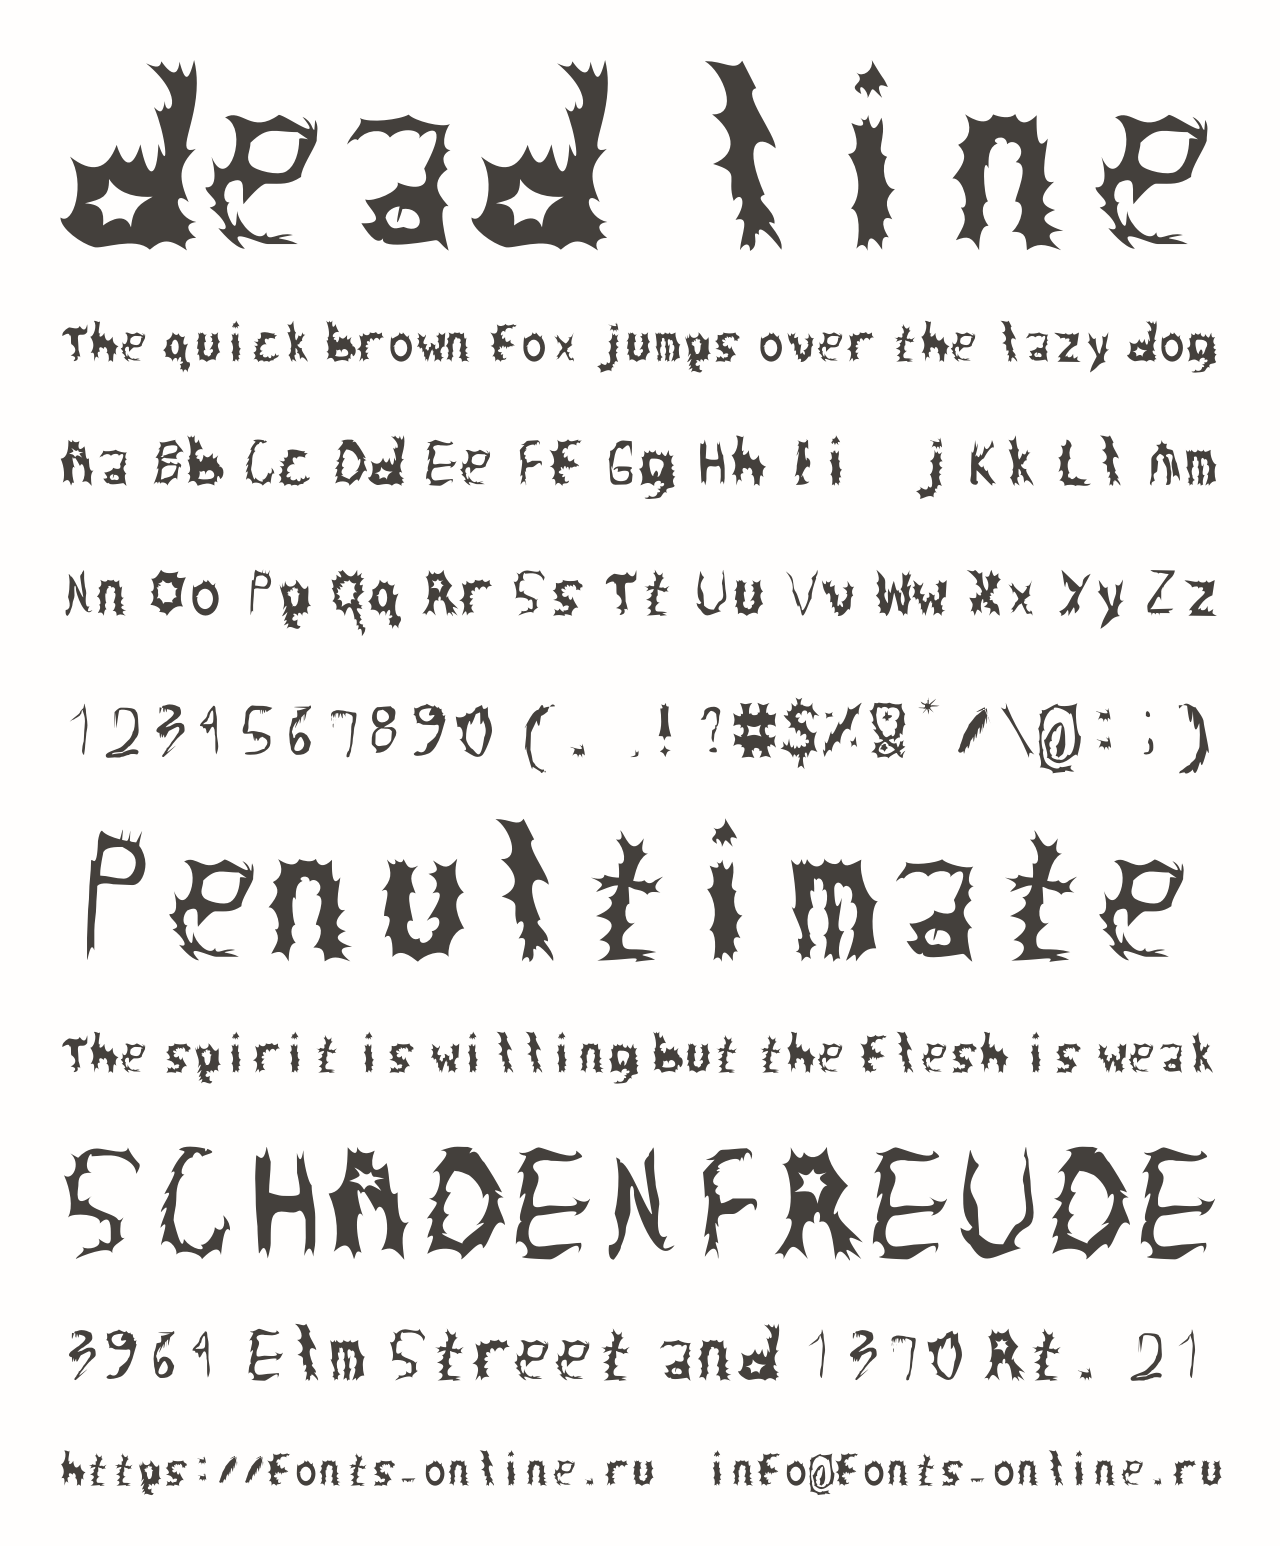 dead line
The quick brown Fox jumps over the lazy dog
Aa Bb Cc Dd Ee FF Gg Hh Ii j Kk Ll Mm
Nn Oo Pp Qq Rr Ss Tt Uu Vv Ww Xx Yy Zz
1234567890 (. .!?#$%&*/\@:;)
Penultimate
The spirit is willing but the Flesh is weak
SCHADENFREUDE
3964 Elm Street and 1370 Rt. 21
https://Fonts-online.ru inFo@Fonts-online.ru